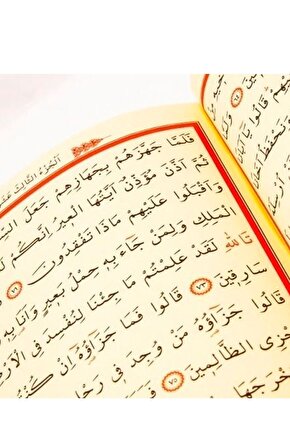 اَلْجُزْءُ الثَّالِثَ عَشَ
فَلَمَّا جَهَّزَهُمْ بِجَهَازِهِمْ جَعَلَ
ثُمَّ اَذَّنَ مُؤَذِّنٌ اَيَّتُهَا الْعِيرُ اِنَّكُمْ
وَاَقْبَلُوا عَلَيْهِمْ مَاذَا تَفْقِدُونَ ٧١
الْمَلِكِ وَلِمَنْ جَاءَ بِهِ حِمْلُ بَعِيرٍ وَاَنَا بِهِ
تَاللّٰهِ لَقَدْ عَلِمْتُمْ مَا جِئْنَا لِنُفْسِدَ فِي الْاَرْ
سَارِقِينَ ٧٣ قَالُوا فَمَا جَزَاؤُهُ اِنْ كُنْتُ
قَالُوا جَزَاؤُهُ مَنْ وُجِدَ فِي رَحْلِ
جْزِي الظَّالِمِينَ ٧٥
خْرَجَهَا
قَالُوا يَا